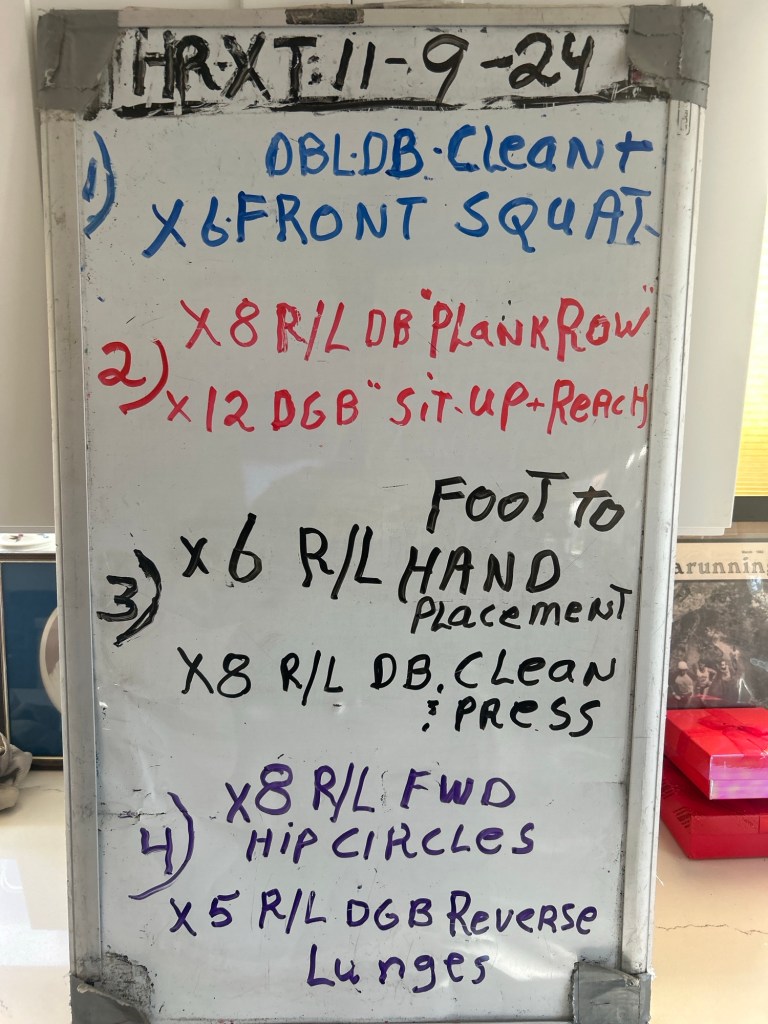 HR-XT: 11-9-24
1) DBL.DB. Clean +
X6 FRONT SQUAT
2) X8 R/L DB "PLANK ROW"
X12 DGB "SIT-UP + REACH
3) X6 R/L FOOT TO
HAND
PLACEMENT
X8 R/L DB. CLEAN
& PRESS
4) X8 R/L FWD
HIP CIRCLES
X5 R/L DGB Reverse
Lunges
arunning